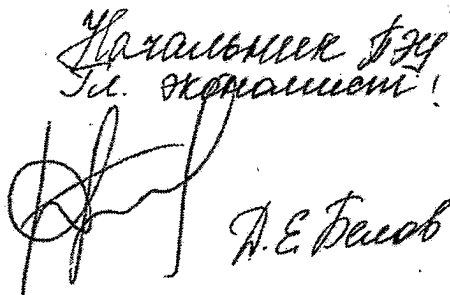 Начальник БЭЦ
Гл. экономист!
Д. Е. Белов